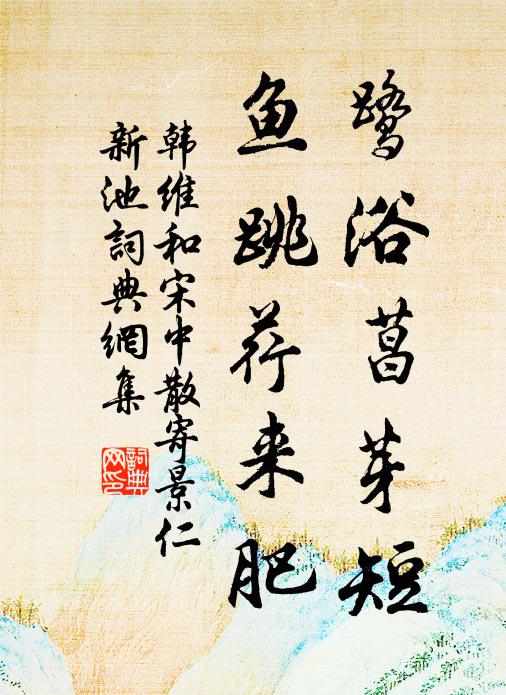 鹭浴菖芽短
鱼跳荇来肥
韩维和宋中散寄景仁
新池詞典網集
詞典网印